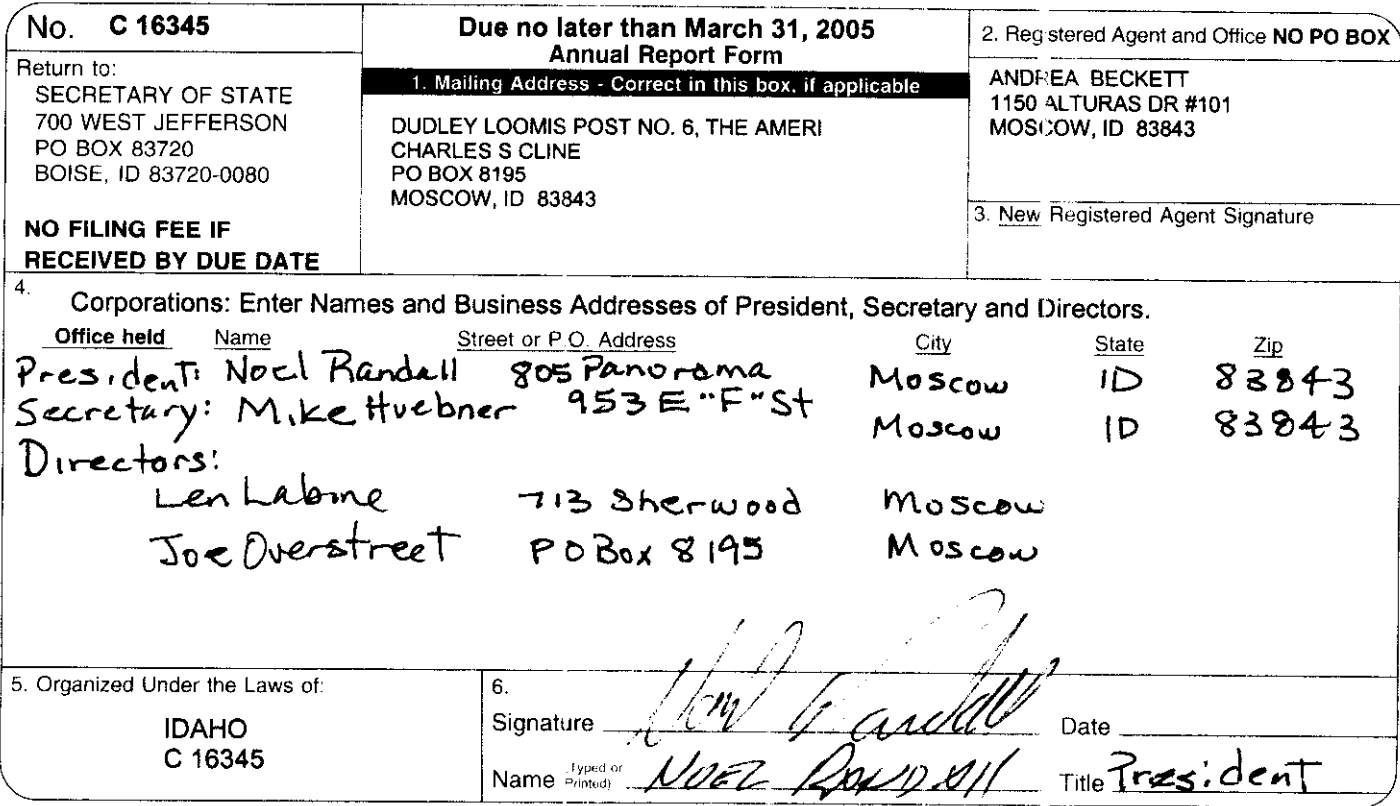 No. C 16345
Return to:
SECRETARY OF STATE
700 WEST JEFFERSON
PO BOX 83720
BOISE, ID 83720-0080
NO FILING FEE IF
RECEIVED BY DUE DATE
Due no later than March 31, 2005
Annual Report Form
1. Mailing Address - Correct in this box, if applicable
DUDLEY LOOMIS POST NO. 6, THE AMERI
CHARLES S CLINE
PO BOX 8195
MOSCOW, ID 83843
2. Registered Agent and Office NO PO BOX
ANDREA BECKETT
1150 ALTURAS DR #101
MOSCOW, ID 83843
3. New Registered Agent Signature
4.
Corporations: Enter Names and Business Addresses of President, Secretary and Directors.
Office held Name Street or P.O. Address City State Zip
President: Noel Randall 805 Panorama Moscow ID 83843
Secretary: Mike Huebner 953 E "F" St Moscow ID 83843
Directors:
Len Labine 713 Sherwood Moscow
Joe Overstreet PO Box 8195 Moscow
5. Organized Under the Laws of:
IDAHO
C 16345
6.
Signature Noel Randall Date
Name (Typed or Printed) NOEL RANDALL Title President